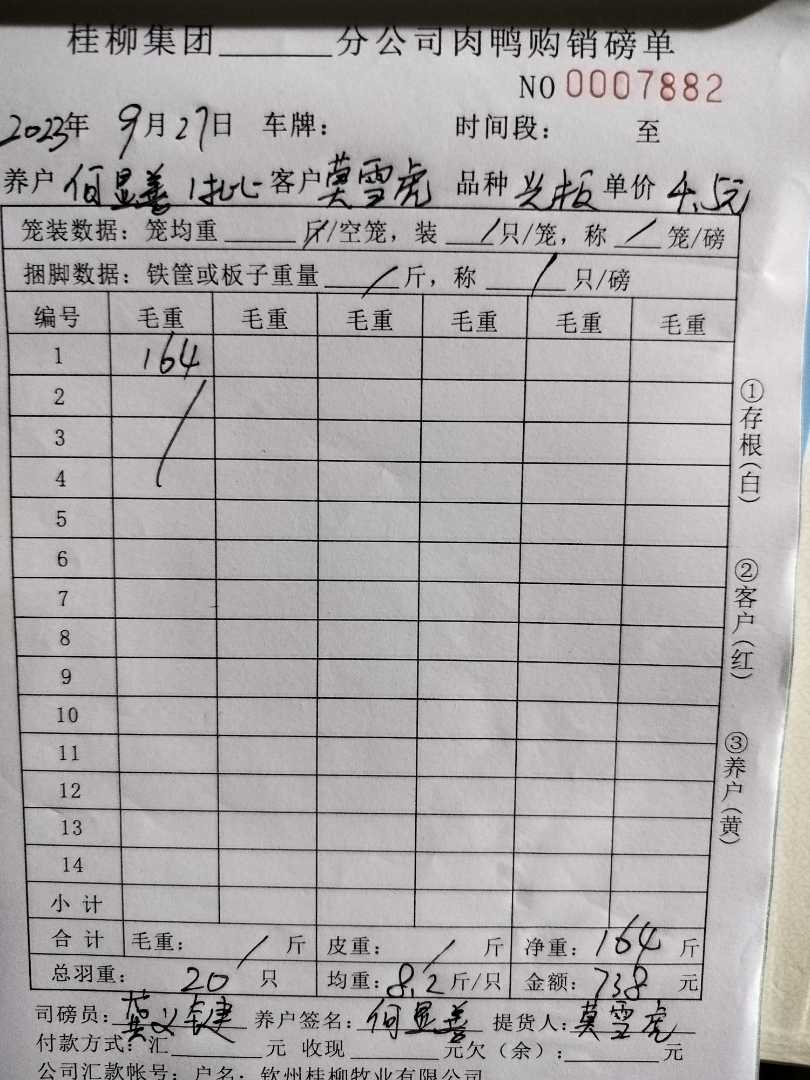 桂柳集团______分公司肉鸭购销磅单
NO 0007882
2023年 9月27日 车牌: 时间段: 至
养户 何显善 1批 客户 莫雪虎 品种 单价 4.5元
笼装数据: 笼均重 ____ 斤/空笼, 装 / 只/笼, 称 / 笼/磅
捆脚数据: 铁筐或板子重量 / 斤, 称 / 只/磅
编号 毛重 毛重 毛重 毛重 毛重 毛重
1 164
2 /
3
4
5
6
7
8
9
10
11
12
13
14
小计
合计 毛重: / 斤 皮重: / 斤 净重: 164 斤
总羽重: 20 只 均重: 8.2 斤/只 金额: 738 元
司磅员: 养户签名: 何显善 提货人: 莫雪虎
付款方式: 汇______元 收现______元欠(余):______元
公司汇款帐号: 户名: 钦州桂柳牧业有限公司
①存根(白)
②客户(红)
③养户(黄)